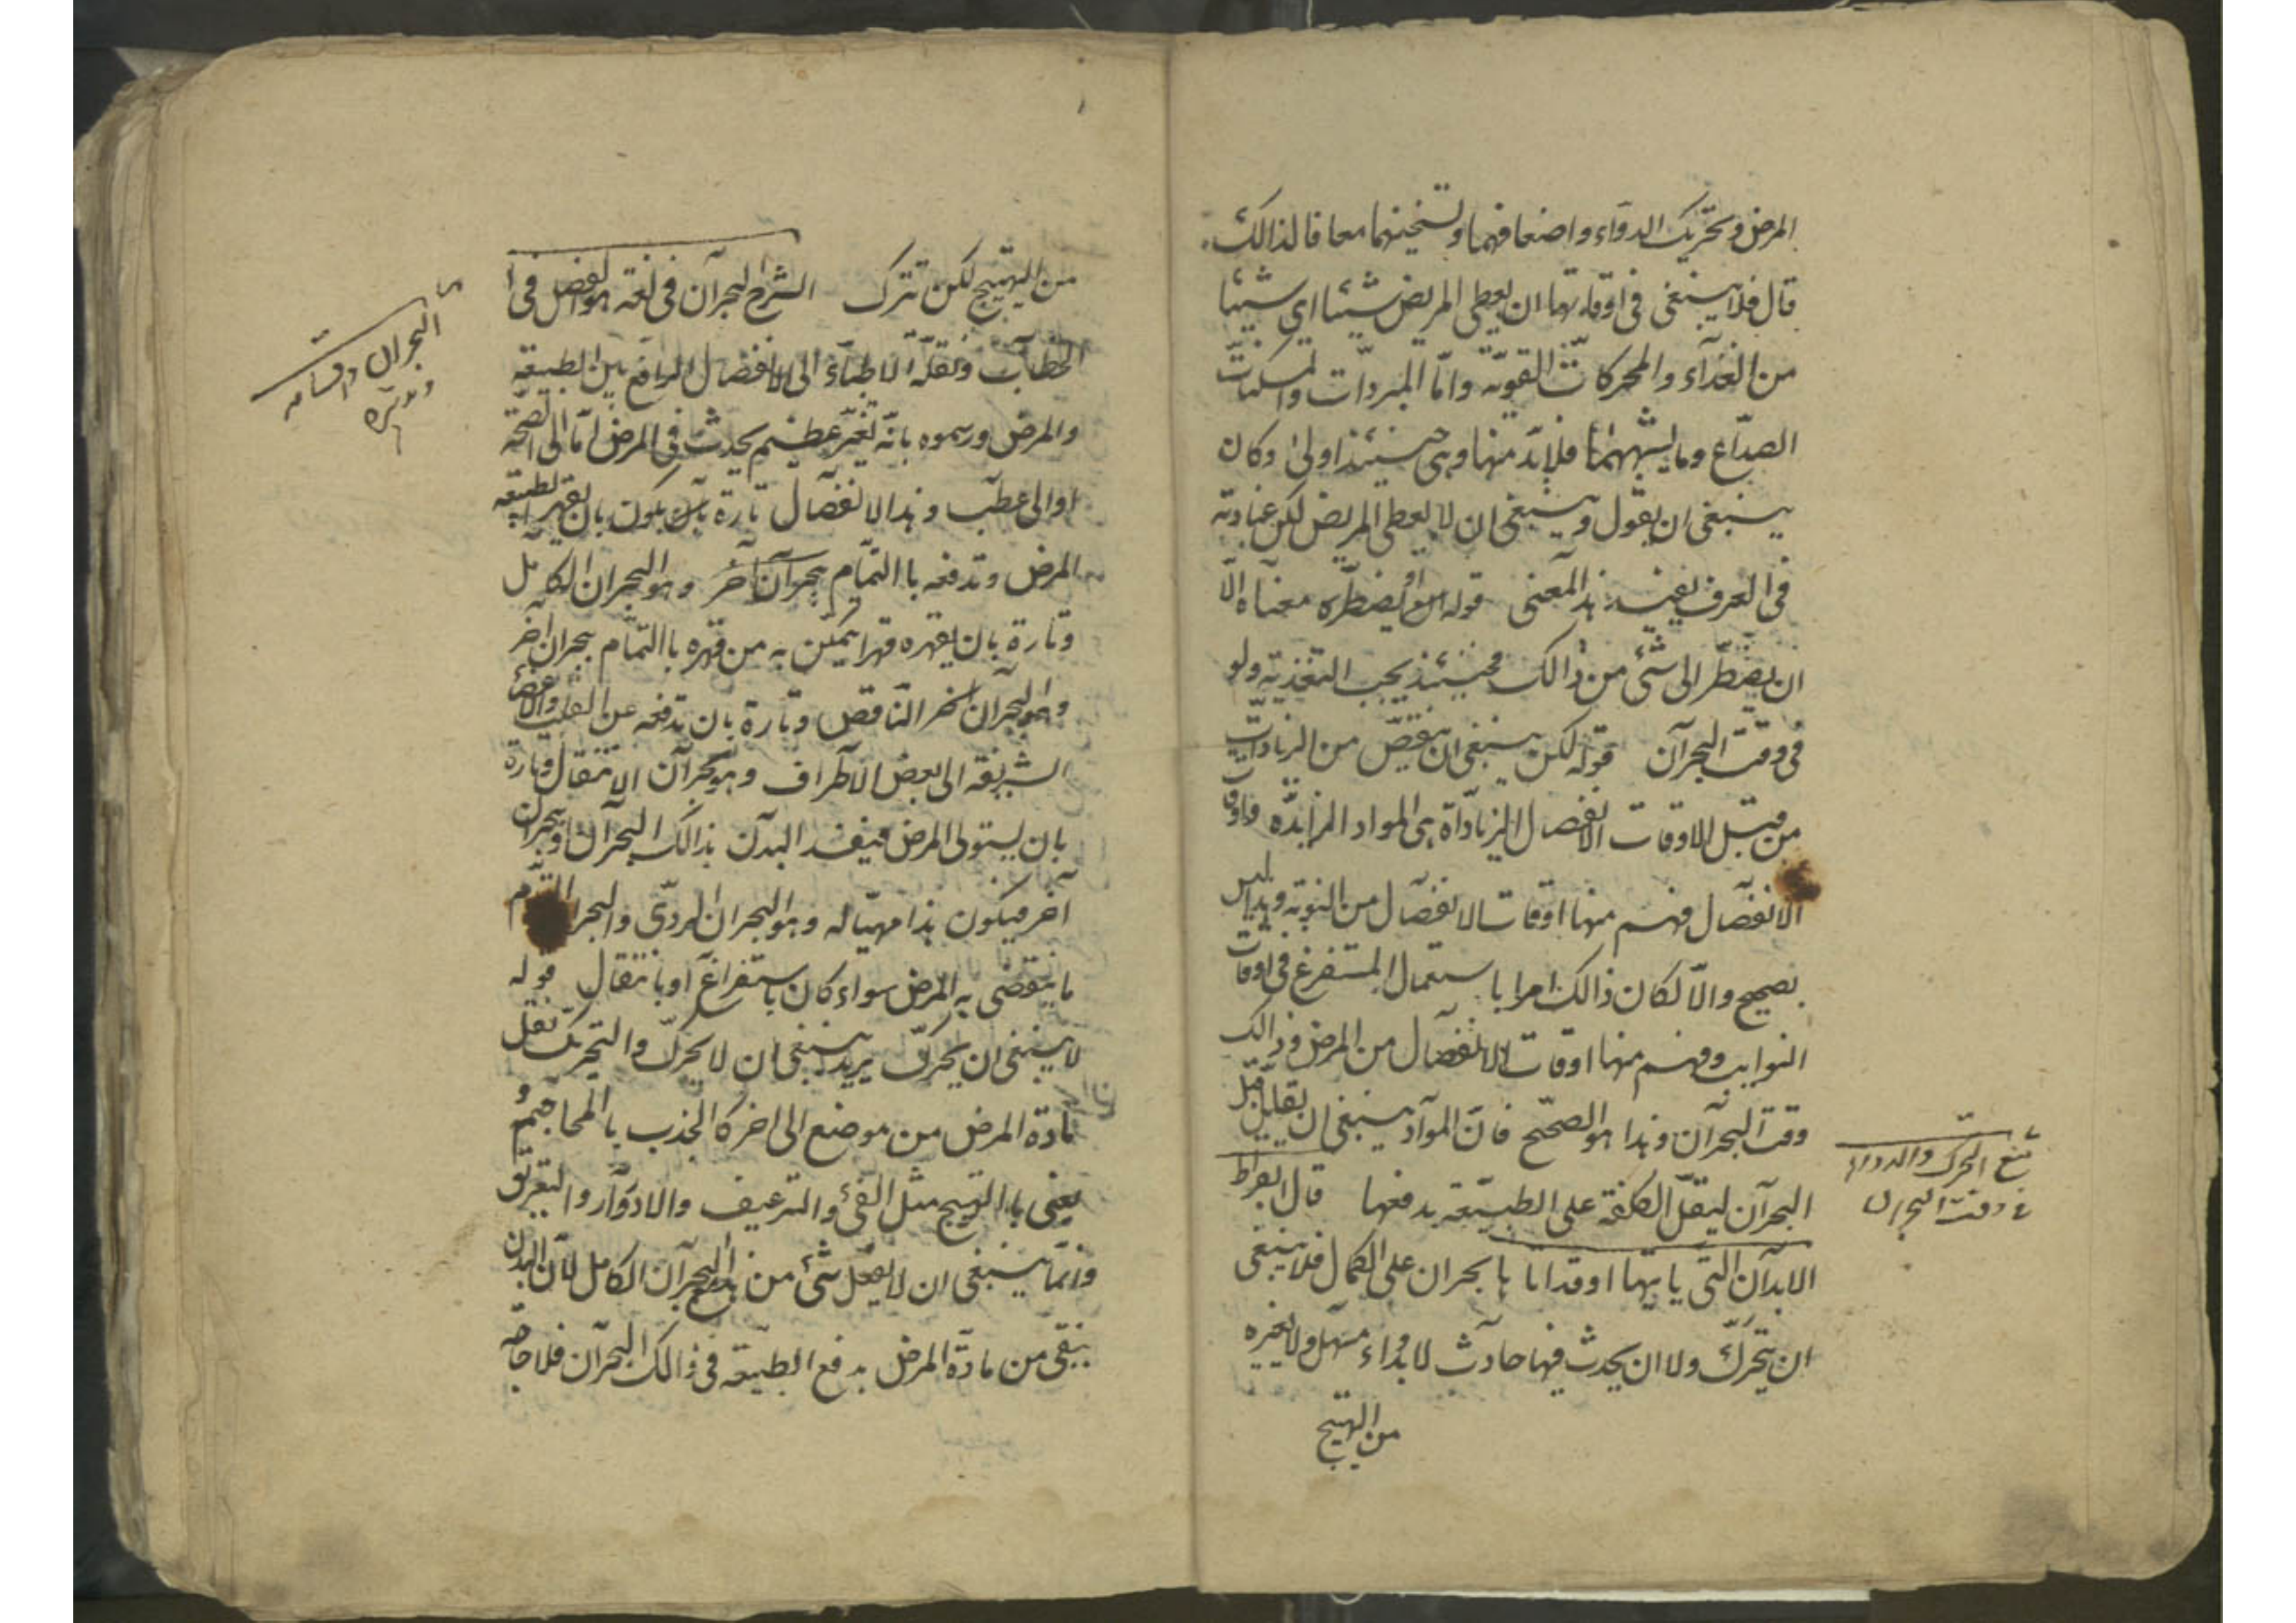 المرض وتحريك الدوآء واضعافهما وتسخينهما معا فالذالك
قال فلا ينبغى فى اوقاتها ان يعطى المريض شيئا اي شيئا
من الغذآء والمحركات القويّة وامّا المبردّات والمسكنات
الصدّاع وما يشبههما فلابّد منها وهى حينئذ اولىٰ وكان
ينبغى ان يقول وينبغى ان لا يعطى المريض لكن عبادته
فى العرف يفيد هذ المعنى قوله او يضطّره معناه الّا
ان يضطّر الى شئ من ذالك فحينئذ يجب التغذية ولو
فى وقت البحرآن قوله لكن ينبغى ان ينقّص من الزيادات
من قبل الاوقات الانفصال الزياداة هى المواد المزايدّه واوقا
الانفصآل فهم منها اوقات الانفصآل من النوبه وهذا ليس
بصحيح والّا لكان ذالك امرا باستعمال المستفرغ فى اوقات
النوايب وفهم منها اوقات الانفصآل من المرض وذالك
وقت البحرآن وهذا هو الصحّيح فانّ الموآد ينبغى ان يقلّل قبل
البحرآن ليقلّ الكلفة على الطبيّعة بدفعها قال ابقراط
الابدآن التى ياتيها او قداتا بابحران على الكمال فلا ينبغى
ان يتحرّك ولا ان يحدث فيها حادث لا بدواء مسهّل ولا بغيره
من التهيج
يمنع التحرك والدواء
فى وقت البحران
من التهيّج لكن تترك الشرح البحرآن فى لغته هو الفصل فى ا
الخطاب ونقلّه الاطبآء الى الانفصال الواقع بين الطبيعة
والمرض ورسموه بانّه تغيّر عظيم يحدث فى المرض امّا الى الصّحة
او الى عطب وهذا الانفصآل تارة يكون بان يقهر الطبيعه
المرض وتدفعه باالتمّام بحرآن آخر وهو البحران الكامل
وتارة بان يقهره قهرا يمكن به من قهره باالتمّام بحران آخر
وهو البحرآن الناقص وتارة بان تدفعه عن القلب والاعضآ
الشريفة الى بعض الاطراف وهو بحرآن الانتقال وتارة
بان يستولى المرض فيفسد البدن بذالك البحرآن او بحران
آخر فيكون هذا مهيّا له وهو البحران الردّى والبحران التآم
ما ينقضى به المرض سواء كان باستفراغ او بانتقال قوله
لا ينبغى ان يحرّك يريد ينبغى ان لا يحرّك والتحريك نقل
مادّة المرض من موضع الى اخر كالجذب باالمحاجم و
يعنى باالتهيج مثل القئ والترعيف والادوّار والتعريق
وانّما ينبغى ان لا يفعل شئ من هذا البحرآن الكامل لانّ البدن
ينقى من مادّة المرض بدفع الطبيّعة فى ذالك البحرآن فلا حاجه
البحران واقسامه